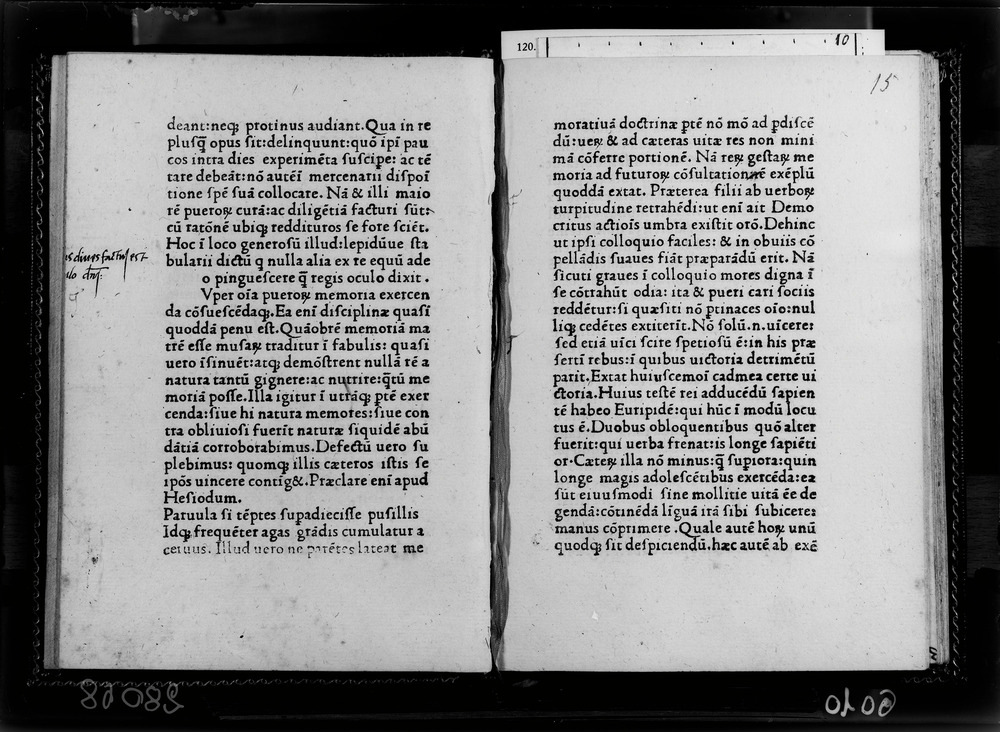 120.
10
15
deant:neqꝫ protinus audiant.Qua in re
pluſq̄ opus ſit:delinquunt:quō ipī pau
cos intra dies experimēta ſuſcipe: ac tē
tare debeāt:nō auteī mercenarii diſpoī
tione ſpē ſuā collocare. Nā & illi maio
rē pueroꝝ curā:ac diligētiā facturi ſūt:
cū ratōnē ubiqꝫ reddituros ſe fore ſciēt.
Hoc ī loco generoſū illud:lepidūue ſta
bularii dictū q nulla alia ex re equū ade
o pingueſcere q̄ regis oculo dixit.
Vper oīa pueroꝝ memoria exercen
da cōſueſcēdaqꝫ.Ea enī diſciplinæ quaſi
quoddā penu eſt.Quāobrē memoriā ma
trē eſſe muſaꝝ traditur ī fabulis: quaſi
uero īſinuēt:atqꝫ demōſtrent nullā rē a
natura tantū gignere:ac nutrire:q̄tū me
moriā poſſe.Illa igitur ī utrāqꝫ ꝑtē exer
cenda:ſiue hi natura memores:ſiue con
tra obliuioſi fuerīt naturæ ſiquidē abū
dātiā corroborabimus.Defectū uero ſu
plebimus: quomqꝫ illis cæteros iſtis ſe
ipōs uincere contig&.Præclare enī apud
Heſiodum.
Paruula ſi tēptes ſupadieciſſe puſillis
Idqꝫ frequēter agas grādis cumulatur a
ceruus. Illud uero ne parētes lateat me
moratiuā doctrinæ ꝑtē nō mō ad ꝑdiſcē
dū:ueꝝ & ad cæteras uitæ res non mini
mā cōferre portionē. Nā reꝝ geſtaꝝ me
moria ad futuroꝝ cōſultationē exēplū
quoddā extat. Præterea filii ab uerboꝝ
turpitudine retrahēdi:ut enī ait Demo
critus actiōis umbra exiſtit orō.Dehinc
ut ipſi colloquio faciles: & in obuiis cō
pellādis ſuaues fiāt præparādū erit. Nā
ſicuti graues ī colloquio mores digna ī
ſe cōtrahūt odia: ita & pueri cari ſociis
reddētur:ſi quæſiti nō ꝑtinaces oīo:nul
liqꝫ cedētes extiterīt.Nō ſolū.n.uīcere:
ſed etiā uīci ſcire ſpetioſū ē:in his præ
ſertī rebus:ī quibus uictoria detrimētū
parit.Extat huiuſcemoī cadmea certe ui
ctoria.Huius teſtē rei adducēdū ſapien
tē habeo Euripidē:qui hūc ī modū locu
tus ē.Duobus obloquentibus quō alter
fuerit:qui uerba frenat:is longe ſapiēti
or.Cæteꝝ illa nō minus:q̄ ſupiora:quin
longe magis adoleſcētibus exercēda:ea
ſūt eiuuſmodi ſine mollitie uitā ēe de
gendā:cōtinēdā līguā irā ſibi ſubicere:
manus cōprimere .Quale autē hoꝝ unū
quodqꝫ ſit deſpiciendū.hæc autē ab exē
28068
6010